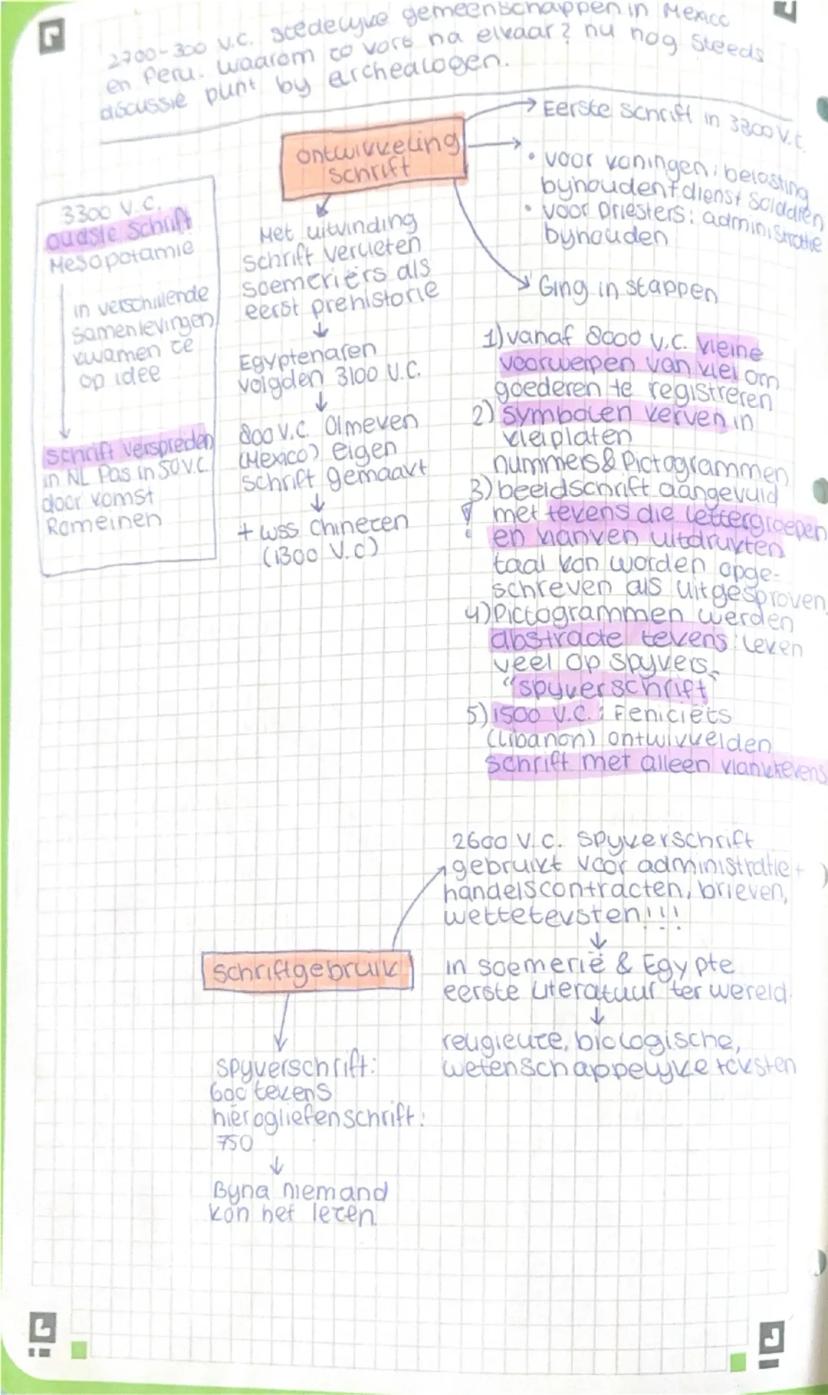 2700-300 v.C. stedelyke gemeenschappen in Mexico
en Peru. waarom zo kort na elkaar? nu nog steeds
discussie punt by archealogen.
ontwikkeling
schrift
Eerste schrift in 3300 v.C.
• voor koningen: belasting
byhouden + dienst soldaten
• voor priesters: administratie
byhouden
Ging in stappen
3300 v.C.
oudste schrift
Mesopotamie
in verschillende
samenlevingen
kwamen ze
op idee
schrift verspreden
in NL Pas in 50 v.C.
door komst
Romeinen
Met uitvinding
schrift verlieten
soemeriërs als
eerst prehistorie
Egyptenaren
volgden 3100 v.C.
800 v.C. Olmeken
(Mexico) eigen
schrift gemaakt
+ wss chinezen
(1300 v.C)
1) vanaf 8000 v.C. kleine
voorwerpen van klei om
goederen te registreren
2) symbolen kerven in
kleiplaten
nummers & Pictogrammen
3) beeldschrift aangevuld
! met tekens die lettergroepen
en klanken uitdrukten
taal kon worden opge-
schreven als uitgesproken
4) Pictogrammen werden
abstracte tekens: leken
veel op spykers,
"spykerschrift
5) 1500 v.C.: Feniciёrs
(Libanon) ontwikkelden
schrift met alleen klanktekens
2600 v.C. spykerschrift
gebruikt voor administratie +
handelscontracten, brieven,
wetteteksten!!!
schriftgebruik
in soemerië & Egypte
eerste literatuur ter wereld.
religieuze, biologische,
wetenschappelyke teksten
spykerschrift:
600 tekens
hierogliefenschrift:
750
Byna niemand
kon het lezen